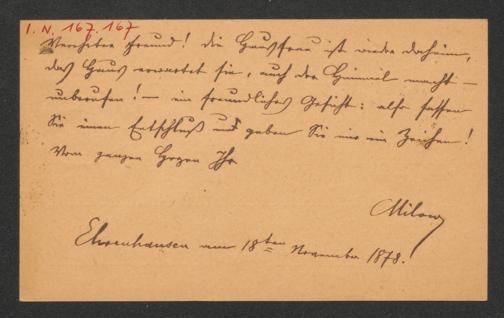 I. N. 167.167
Verehrter Freund! die Hausfrau ist wieder daheim,
das Haus erwartet sie, auch der Himmel macht –
unberufen! – ein freundliches Gesicht: also fassen
Sie einen Entschluß und geben Sie mir ein Zeichen!
Vom ganzen Herzen Ihr
Milow
Ehrenhausen am 18ten November 1878.